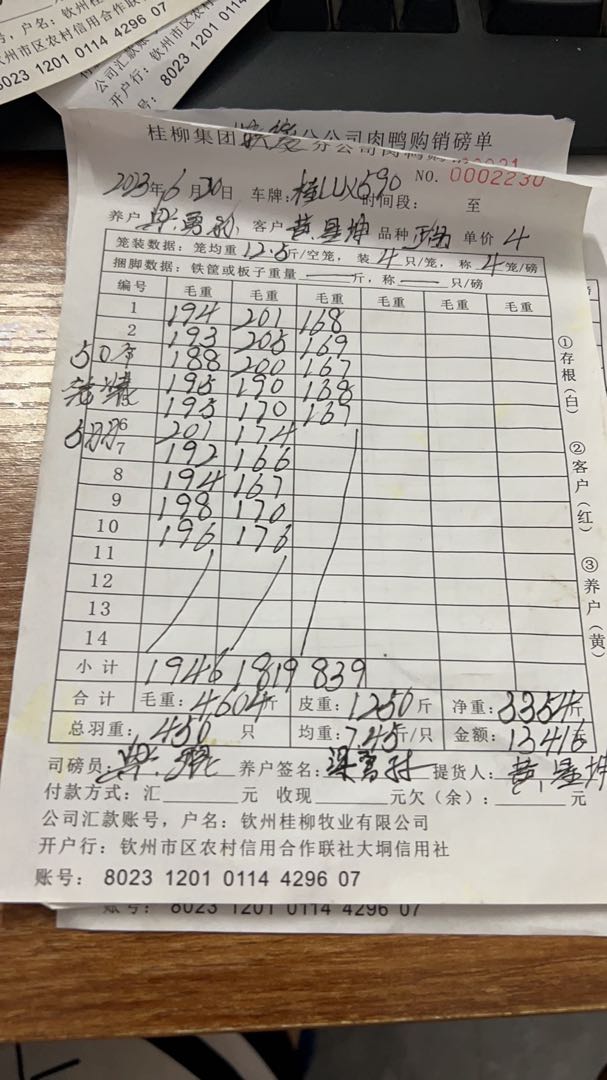 号，户名：钦州桂
钦州市区农村信用合作联
8023 1201 0114 4296 07
公司汇款账
开户行：钦州市区农村信用
账号：8023 1201 0114 4296 07
桂柳集团钦廉分公司肉鸭购销磅单
NO. 0002230
2023年6月20日 车牌：桂LUX590 时间段： 至
养户 客户 黄星坤 品种 单价 4
笼装数据：笼均重 12.5 斤/空笼，装 4 只/笼，称 4 笼/磅
捆脚数据：铁筐或板子重量 斤，称 只/磅
编号 毛重 毛重 毛重 毛重 毛重 毛重
1 194 201 168
2 193 205 169
188 200 167
195 190 168
195 170 167
6 201 174
7 192 166
8 194 167
9 198 170
10 196 176
11
12
13
14
小计 1946 1819 839
合计 毛重：4604斤 皮重：1250斤 净重：3354斤
总羽重：450 只 均重：7.45斤/只 金额：13416元
司磅员： 养户签名： 提货人：黄星坤
付款方式：汇 元 收现 元欠（余）： 元
公司汇款账号，户名：钦州桂柳牧业有限公司
开户行：钦州市区农村信用合作联社大垌信用社
账号：8023 1201 0114 4296 07
①存根（白）
②客户（红）
③养户（黄）
账号：8023 1201 0114 4296 07